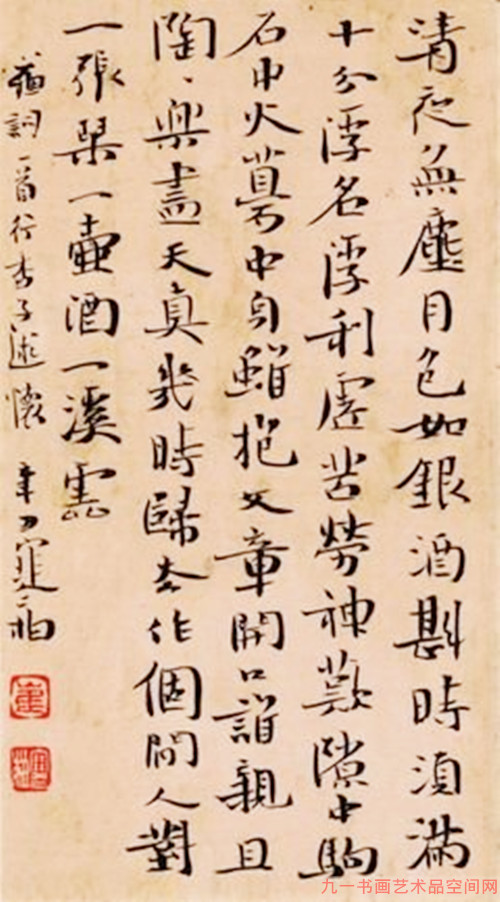 清夜無塵月色如銀酒斟時須滿
十分浮名浮利虛苦勞神歎隙中駒
石中火夢中身雖抱文章開口誰親且
陶、樂盡天真幾時歸去作個閒人對
一張琴一壺酒一溪雲
蘇詞一首行香子述懷 辛丑
九一书画艺术品空间网